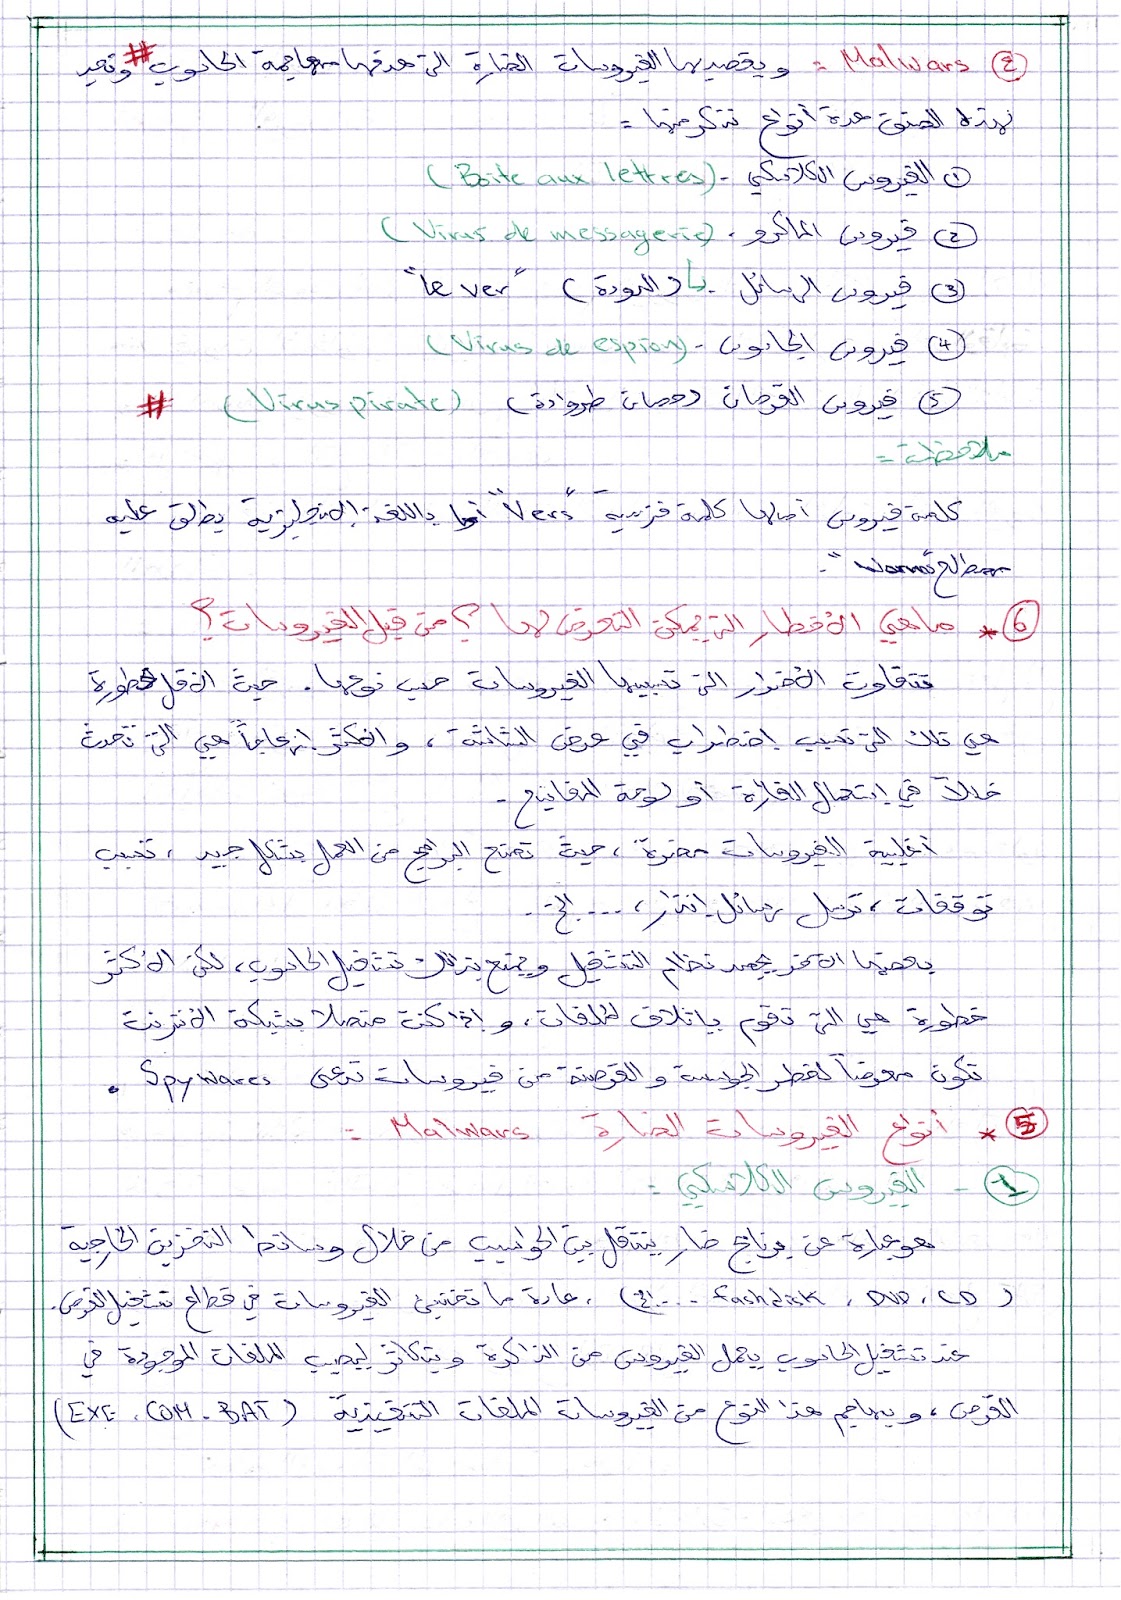 ② Malwars = ويقصد بها الفيروسات الضارة التي هدفها مهاجمة الحاسوب # ونجد
لهذه الصنف عدة أنواع نذكر منها =
① الفيروس الكلاسيكي - (Boite aux lettres)
② فيروس الماكرو . (Virus de messagerie)
③ فيروس الرسائل (الدودة) "le ver"
④ فيروس الجاسوس - (Virus de espion)
⑤ فيروس القرصان (حصان طروادة) (Virus pirate) #
ملاحظة =
كلمة فيروس أصلها كلمة فرنسية "Vers" أما باللغة الإنجليزية يطلق عليه
مصطلح "Worms".
⑥ * ماهي الأخطار التي يمكن التعرض لها ؟ من قبل الفيروسات ؟
تتفاوت الأضرار التي تسببها الفيروسات حسب نوعها . حيث الأقل خطورة
هي تلك التي تسبب إضطراب في عرض الشاشة ، والأكثر إزعاجاً هي التي تحدث
خللاً في إستعمال الفأرة أو لوحة المفاتيح -
أغلبية الفيروسات مضرة ، حيث تمنع البرامج من العمل بشكل جيد ، تسبب
توقفات ، ترسل رسائل إنذار ، .... الخ.
بعضها الآخر يجمد نظام التشغيل ويمنع بذلك تشغيل الحاسوب ، لكن الأكثر
خطورة هي التي تقوم بإتلاف الملفات ، و إذا كنت متصلا بشبكة الأنترنت
تكون معرضاً لخطر الجوسسة و القرصنة من فيروسات تدعى Spywares .
⑤ * أنواع الفيروسات الضارة Malwars =
① - الفيروس الكلاسيكي =
هو عبارة عن برنامج ضار ينتقل بين الحواسيب من خلال وسائط التخزين الخارجية
(CD ، DVD ، flashdisk .... الخ) . عادة ما تختبئ الفيروسات في قطاع تشغيل القرص.
عند تشغيل الحاسوب يحمل الفيروس من الذاكرة ويتكاثر ليصيب الملفات الموجودة في
القرص ، و يهاجم هذا النوع من الفيروسات الملفات التنفيذية (EXE . COM . BAT)